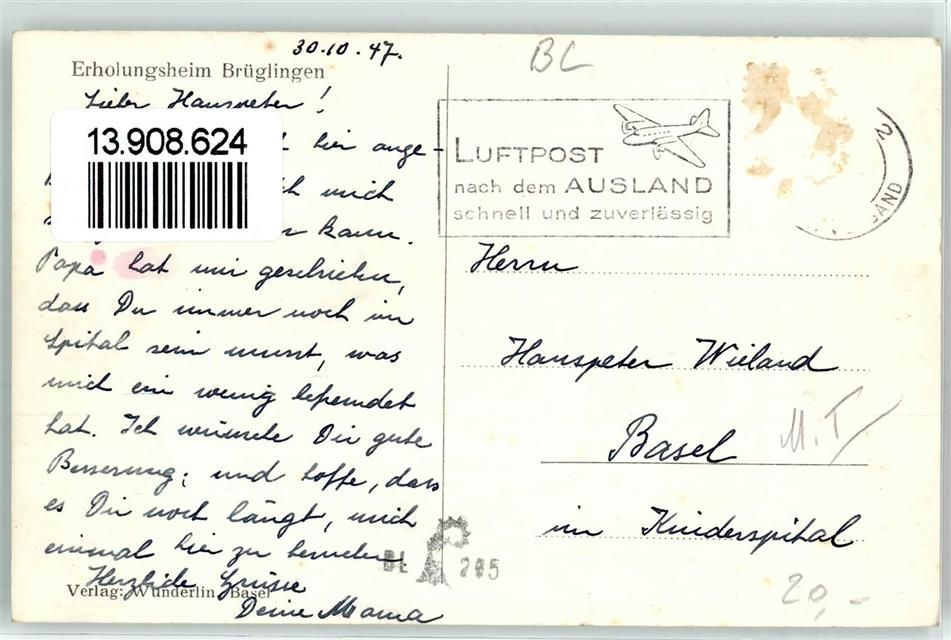 30.10.47.
BL
Erholungsheim Brüglingen
Lieber Hanspeter!
13.908.624
hier ange-
mich
kann.
Papa hat mir geschrieben,
dass Du immer noch im
Spital sein musst, was
mich ein wenig befremdet
hat. Ich wünsche Dir gute
Besserung; und hoffe, dass
es Dir noch längt, mich
einmal hier zu besuchen
Herzliche Grüsse
Deine Mama
Verlag: Wunderlin, Basel
LUFTPOST
nach dem AUSLAND
schnell und zuverlässig
Herrn
Hanspeter Wieland
Basel
M.T
im Kinderspital
BL 285
20,-